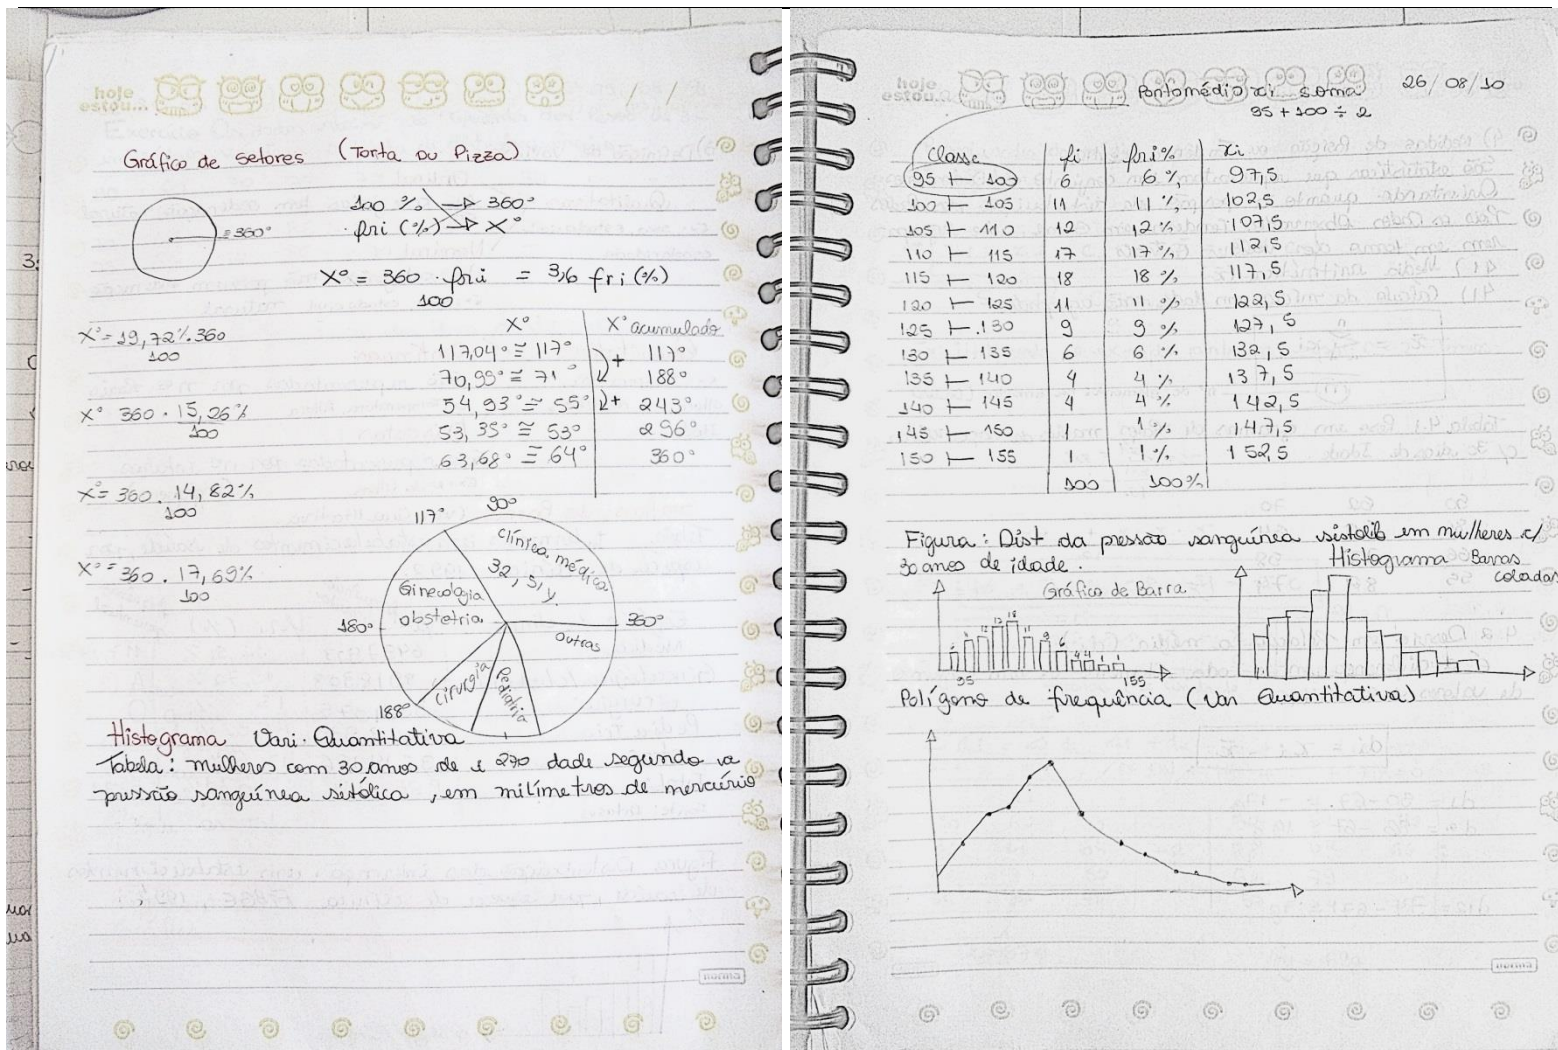 hoje
estou...
/ /
Gráfico de setores (Torta ou Pizza)
100 % → 360°
fri (%) → X°
= 360°
X° = 360 . fri = 3,6 fri (%)
100
X° = 19,72% . 360
100
X° 360 . 15,26%
100
X° = 360 . 14,82%
100
X° = 360 . 17,69%
100
X° X° acumulado
117,04° ≅ 117° + 117°
70,99° ≅ 71° 188°
54,93° ≅ 55° + 243°
53,35° ≅ 53° 296°
63,68° ≅ 64° 360°
90°
117°
clínica médica
32, 5, y.
Ginecologia
obstetria
180°
360°
outras
cirurgia
Pediatria
188°
Histograma Vari. Quantitativa
Tabela: mulheres com 30 anos de 270 dade segundo
pressão sanguínea sistólica, em milímetros de mercúrio
norma
hoje
estou...
Ponto médio xi soma 26/08/10
95 + 100 ÷ 2
Classe fi fri% xi
95 ⊢ 100 6 6% 97,5
100 ⊢ 105 11 11% 102,5
105 ⊢ 110 12 12% 107,5
110 ⊢ 115 17 17% 112,5
115 ⊢ 120 18 18% 117,5
120 ⊢ 125 11 11% 122,5
125 ⊢ 130 9 9% 127,5
130 ⊢ 135 6 6% 132,5
135 ⊢ 140 4 4% 137,5
140 ⊢ 145 4 4% 142,5
145 ⊢ 150 1 1% 147,5
150 ⊢ 155 1 1% 152,5
100 100%
Figura: Dist da pressão sanguínea em mulheres c/
30 anos de idade.
Histograma Barras
coladas
Gráfico de Barra
95 155
Polígono de frequência (Var Quantitativa)
norma